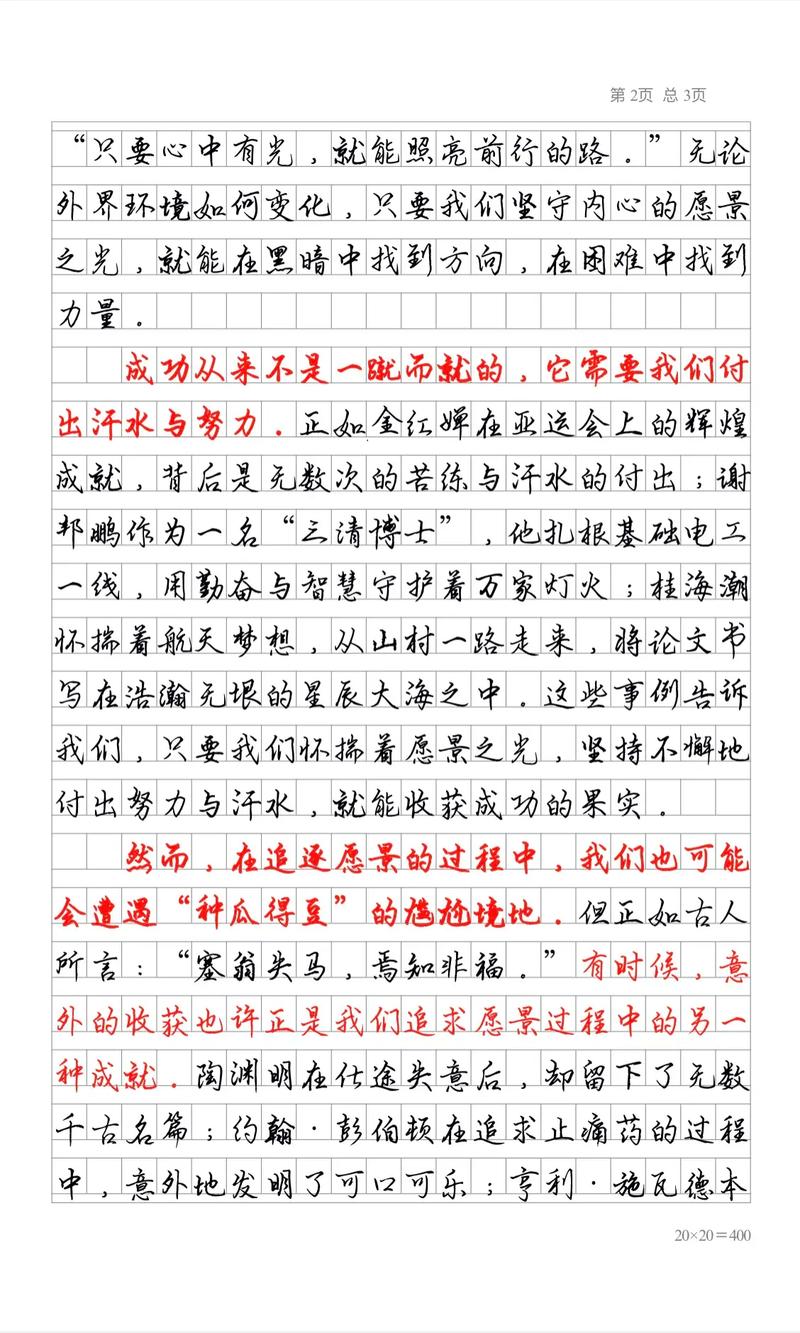 第 2页 总 3页
“只要心中有光，就能照亮前行的路．”无论
外界环境如何变化，只要我们坚守内心的愿景
之光，就能在黑暗中找到方向，在困难中找到
力量．
成功从来不是一蹴而就的，它需要我们付
出汗水与努力．正如金红婵在亚运会上的辉煌
成就，背后是无数次的苦练与汗水的付出；谢
邦鹏作为一名“三清博士”，他扎根基础电工
一线，用勤奋与智慧守护着万家灯火；桂海潮
怀揣着航天梦想，从山村一路走来，将论文书
写在浩瀚无垠的星辰大海之中．这些事例告诉
我们，只要我们怀揣着愿景之光，坚持不懈地
付出努力与汗水，就能收获成功的果实．
然而，在追逐愿景的过程中，我们也可能
会遭遇“种瓜得豆”的尴尬境地．但正如古人
所言：“塞翁失马，焉知非福．”有时候，意
外的收获也许正是我们追求愿景过程中的另一
种成就．陶渊明在仕途失意后，却留下了无数
千古名篇；约翰·彭伯顿在追求止痛药的过程
中，意外地发明了可口可乐；亨利·施瓦德本
20×20＝400